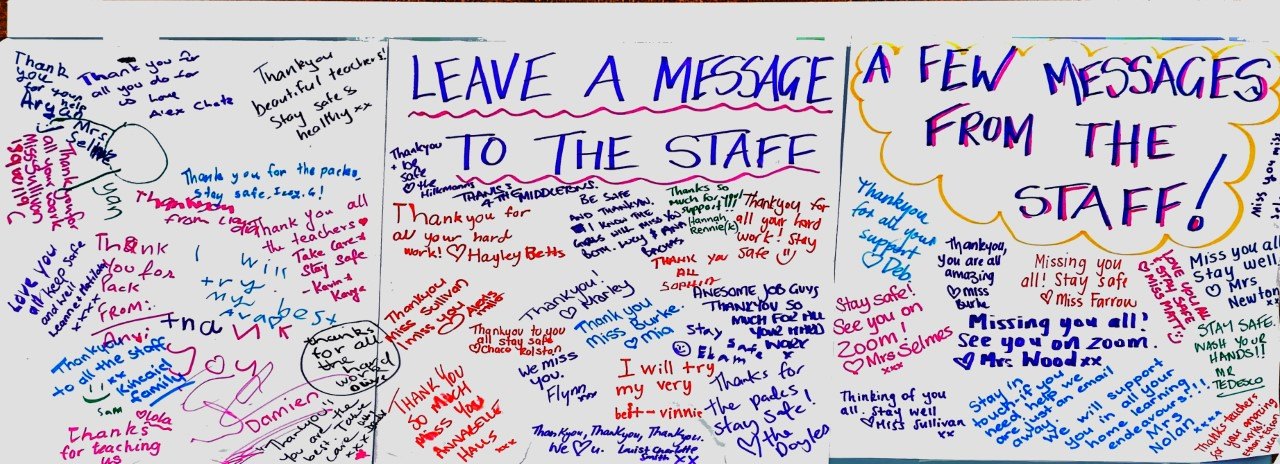 Thank
you
for your
help
Aryan
Thank you for
all you do for
us Love
Alex Chatz
Thankyou
beautiful teachers!
Stay safe &
healthy xx
Mrs
Selme
Thank you for
all your
Miss Sullivan
Thank you for the packs,
stay safe.
Thank you all
the teachers
Take Care
Stay safe
Love you
all keep safe
and well
xxx
Thank
You for
Pack
From:
Anvi
I will
try
my
best
Thankyou
to all the staff
xx
Kincaid
family
Sam
Lola
Thanks
for teaching
us
Damien
thanks
for all
the
Thankyou!!
LEAVE A MESSAGE
TO THE STAFF
Thankyou
be
safe
the
Hilkmanns
THANKS
4 THE MIDDLETONS.
Thankyou for
all your hard
work! ♡ Hayley Betts
BE SAFE
AND THANKYOU.
I KNOW THE
GIRLS WILL MISS YOU
BOTH. LUCY & ANN
Thanks so
much for
support!!!
Hannah
Rennie(K)
Thankyou for
all your hard
work! Stay
safe
THANK YOU
ALL
Thankyou
miss Sullivan
I miss you
Thankyou!
♡ Marley
Thankyou to you
all stay safe
Thank you
Miss Burke.
♡ mia
AWESOME JOB GUYS
THANKYOU SO
MUCH FOR ALL
YOUR HARD
WORK
x
We miss
you.
Flynn
Stay
Safe
I will try
my very
best - vinnie
THANK YOU
SO MUCH
MISS YOU
ANNABELLE
xxx
Thanks for
the packs
stay safe!
♡ the
Doyles
Thankyou, Thankyou, Thankyou.
We ♡ u.
Smith xx
A FEW MESSAGES
FROM THE
STAFF!
Thankyou
for all your
support
♡ Deb
Thankyou,
you are all
amazing
♡ Miss
Burke
Missing you
all! Stay safe
♡ Miss Farrow
LOVE YOU ALL
& STAY SAFE
♡ MISS MATT
Miss you all
Stay well.
♡ Mrs
Newton
Miss you
Stay safe!
See you on
Zoom!
♡ Mrs Selmes
xxx
Missing you all!
See you on zoom.
♡ Mrs Wood xx
STAY SAFE.
WASH YOUR
HANDS!!
MR
TEDESCO
Thinking of you
all. Stay well
♡ Miss Sullivan
xx
Stay in
touch - if you
need help we
are just an email
away
We will support
you in all your
home learning
endeavours!!!
Mrs
Nolan xxxx
Thanks teachers
you are amazing